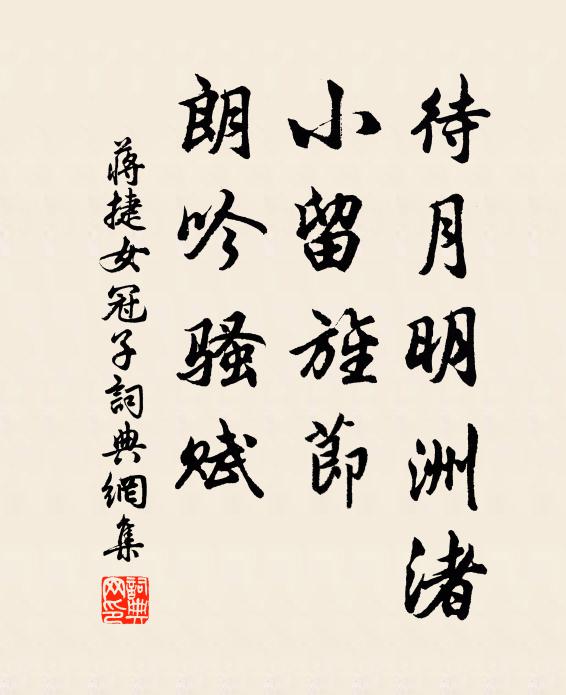 待月明洲渚
小留旌節
朗吟騷赋
蔣捷女冠子詞典網集
詞典
网印